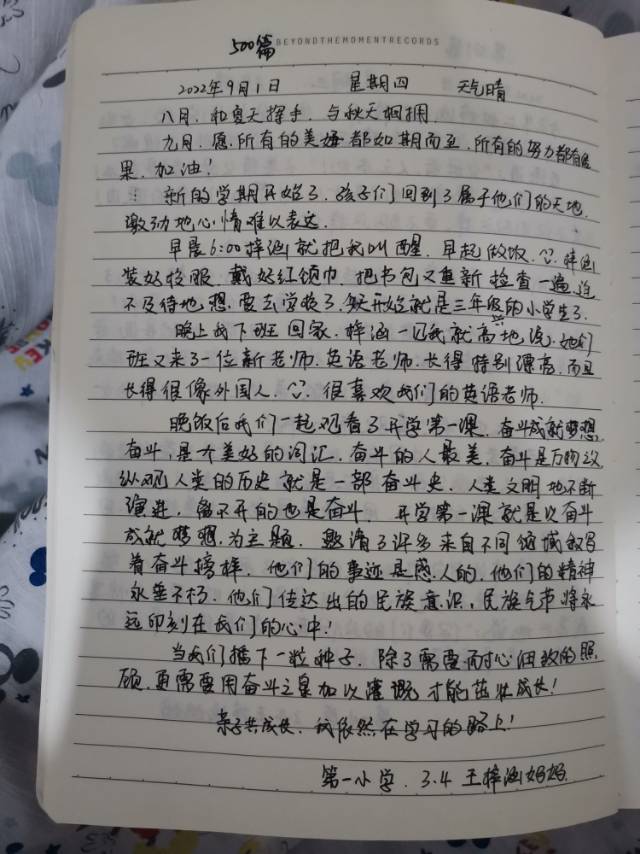 500篇
BEYONDTHEMOMENTRECORDS
2022年9月1日 星期四 天气晴
八月，和夏天握手，与秋天相拥，
九月，愿所有的美好都如期而至，所有的努力都有结
果，加油！
新的学期开始了，孩子们回到了属于他们的天地，
激动地心情难以表达，
早晨6:00梓涵就把我叫醒，早起做饭，梓涵
装好校服，戴好红领巾，把书包又重新检查一遍，迫
不及待地想要去学校了，今天开始就是三年级的小学生了，
晚上我下班回家，梓涵一见我就高兴地说，她们
班又来了一位新老师，英语老师，长得特别漂亮，而且
长得很像外国人，很喜欢我们的英语老师，
晚饭后我们一起观看了开学第一课，奋斗成就梦想，
奋斗，是个美好的词汇，奋斗的人最美，奋斗是万物之
纵观人类的历史就是一部奋斗史，人类文明地不断
演进，离不开的也是奋斗，开学第一课就是以奋斗
成就梦想为主题，邀请了许多来自不同领域
着奋斗榜样，他们的事迹是感人的，他们的精神
永垂不朽，他们传达出的民族意识，民族气节将永
远印刻在我们的心中！
当我们播下一粒种子，除了需要耐心细致的照
顾，更需要用奋斗之泉加以灌溉才能茁壮成长！
亲子共成长，我依然在学习的路上！
第一小学，3.4 王梓涵妈妈